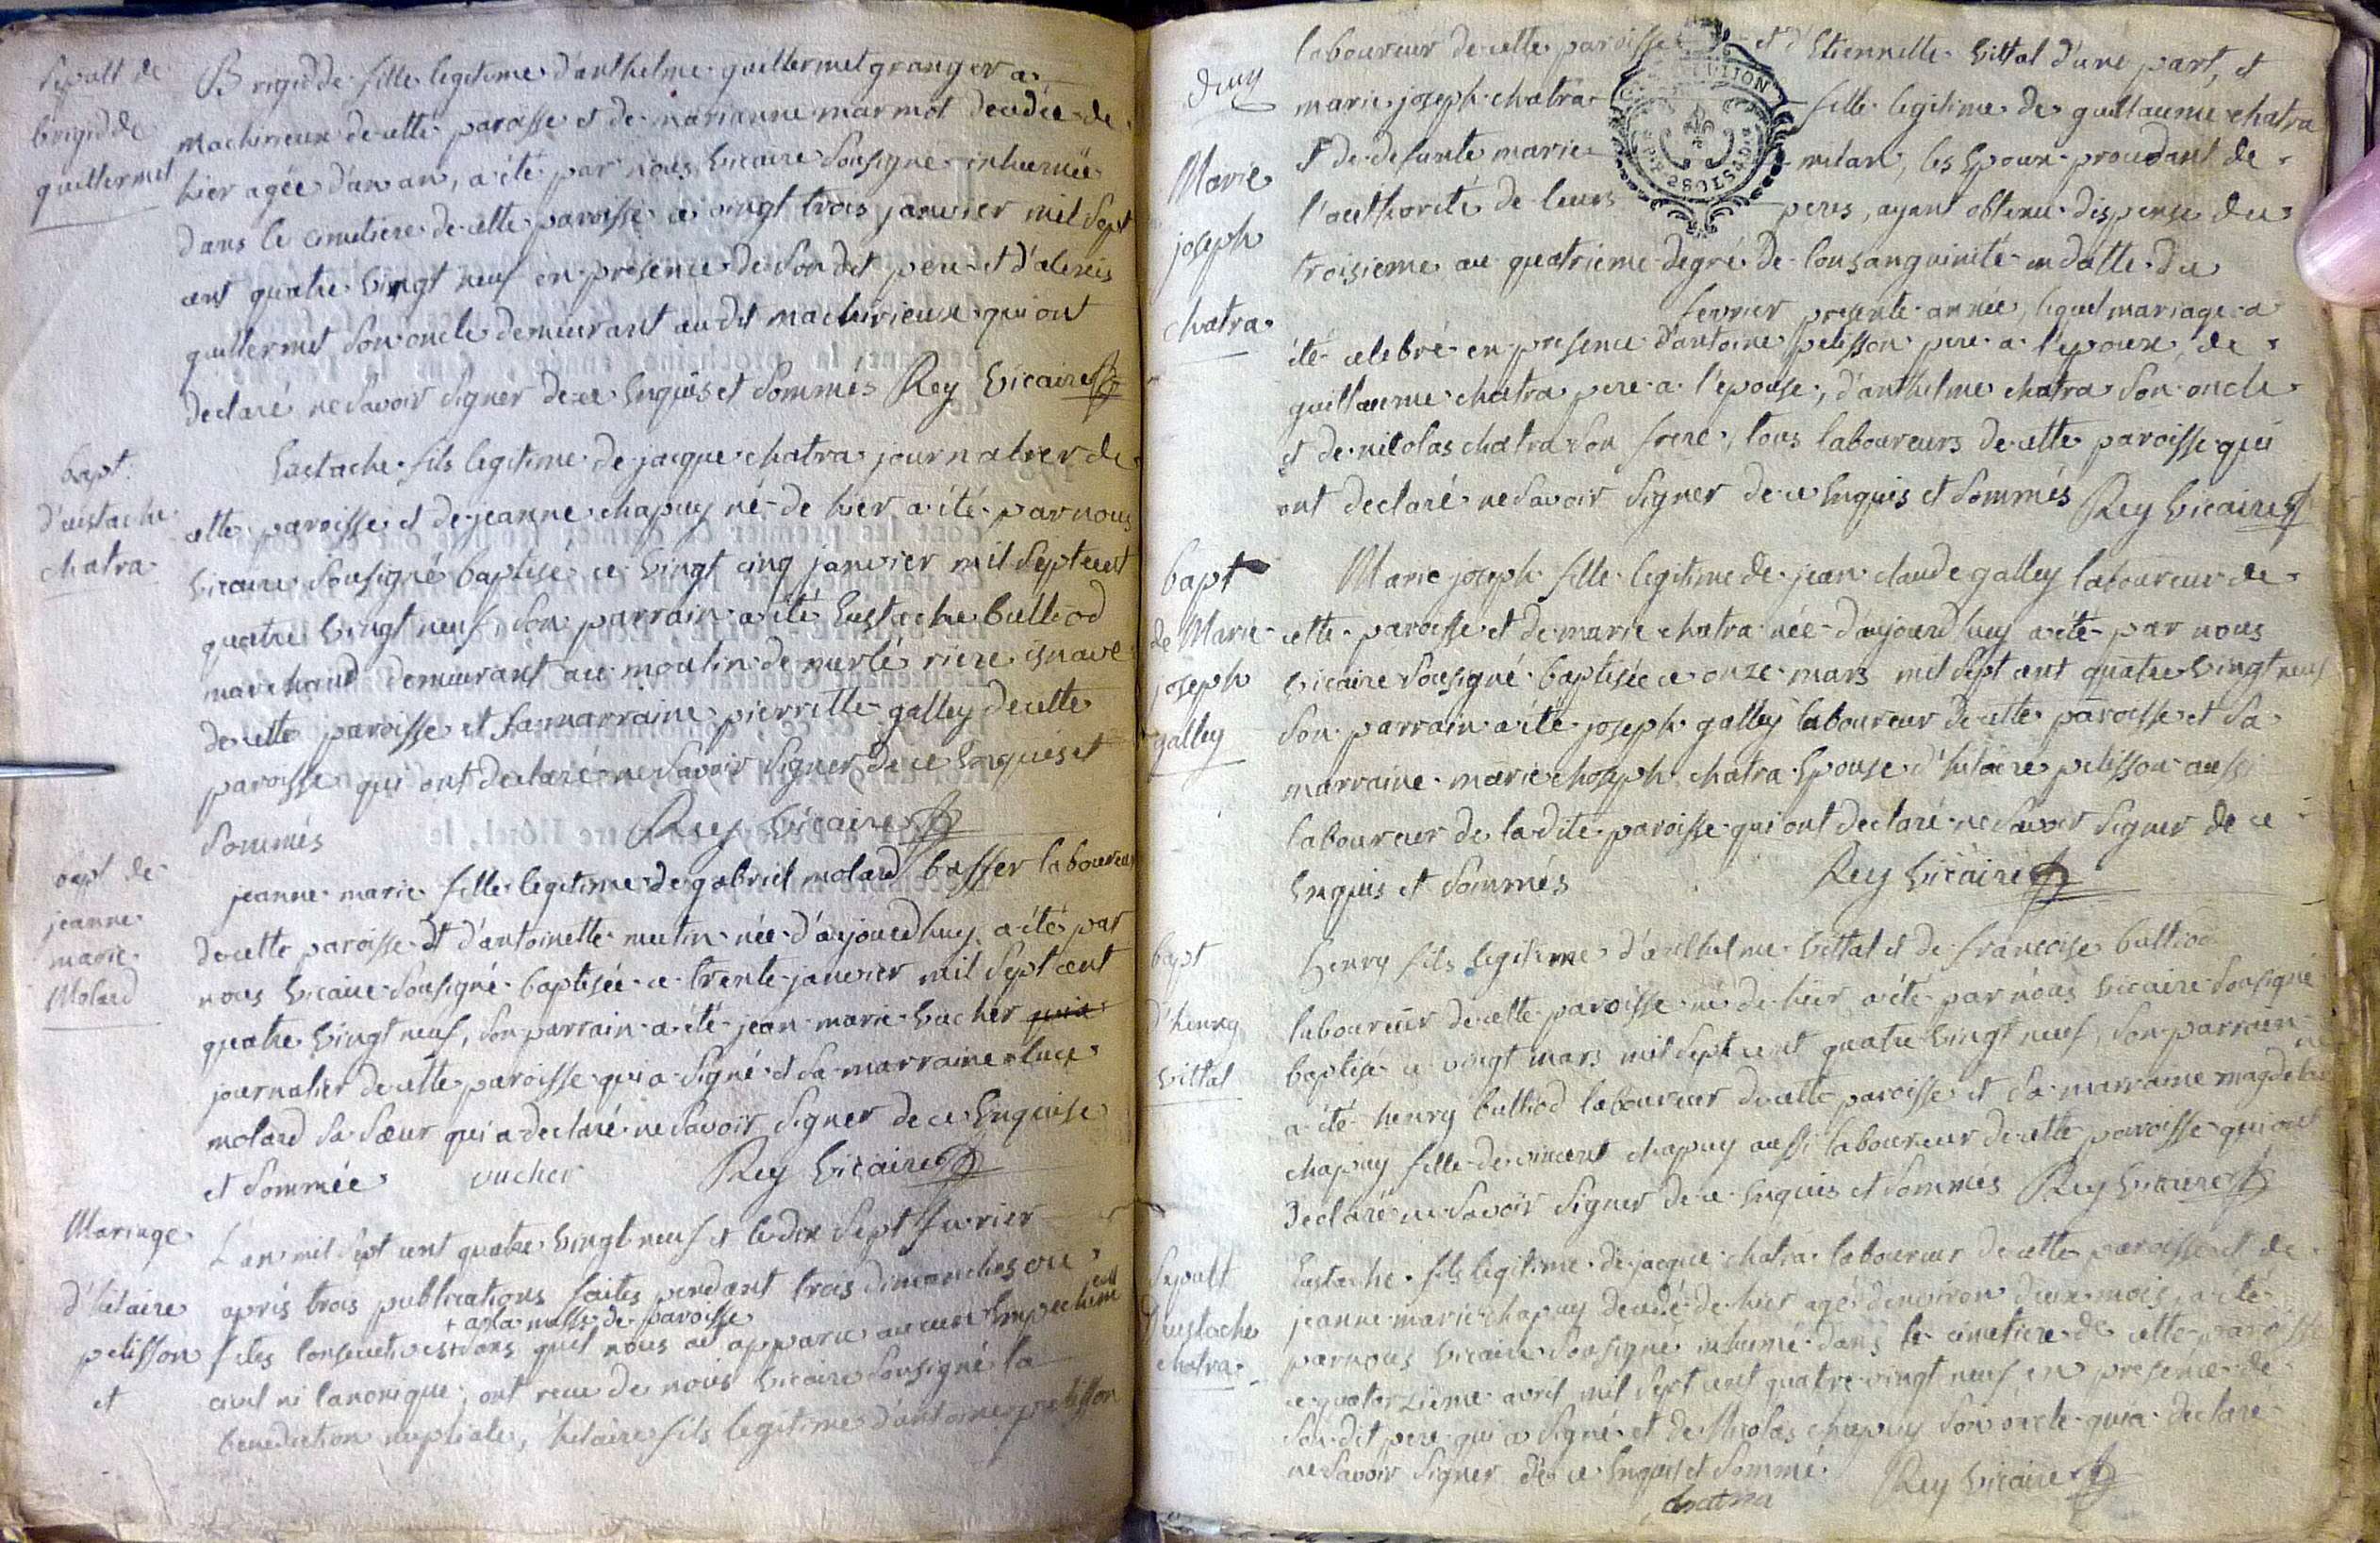 sepult de
brigidde
guillermet
Brigidde fille legitime d'anthelme guillermet granger a
machirieux de cette paroisse et de marianne marmot decedée de
hier agée d'un an, a été par nous vicaire soussigné inhumée
dans le cimetiere de cette paroisse ce vingt trois janvier mil sept
cent quatre vingt neuf en presence de son dit pere et d'alexis
guillermet son oncle demeurant au dit machirieux qui ont
declaré ne savoir signer de ce enquis et sommés Rey vicaire
bapt.
d'eustache
chatra
Eustache fils legitime de jacque chatra journalier de
cette paroisse et de jeanne chapuy né de hier a été par nous
vicaire sousigné baptisé ce vingt cinq janvier mil sept cent
quatre vingt neuf, son parrain a été Eustache bulliod
marchand demeurant au moulin de riere
de cette paroisse et sa marraine pierrette galley de cette
paroisse qui ont declaré ne savoir signer de ce enquis et
sommés Rey vicaire
bapt de
jeanne
marie
Molard
jeanne marie fille legitime de gabriel molard basser laboureur
de cette paroisse et d'antoinette mutin née d'aujourdhuy a été par
nous vicaire sousigné baptisée ce trente janvier mil sept cent
quatre vingt neuf, son parrain a été jean marie vucher
journalier de cette paroisse qui a signé et sa marraine luce
molard sa sœur qui a declaré ne savoir signer de ce enquise
et sommée vucher Rey vicaire
Mariage
d'hilaire
pelisson
et
L'an mil sept cent quatre vingt neuf et le dix sept fevrier
après trois publications faites pendant trois dimanches ou
+ a la messe de paroisse
fetes consecutives + sans qu'il nous ait apparu aucun empechement
civil ni canonique, ont reçu de nous vicaire sousigné la
benediction nuptiale, hilaire fils legitime d'antoine pelisson
laboureur de cette paroisse et d'Etiennette vittal d'une part, et
duy
Marie
joseph
chatra
marie joseph chatra fille legitime de guillaume chatra
et de defunte marie milan, les epoux procedant de
l'authorité de leurs peres, ayant obtenu dispense du
troisieme au quatrieme degré de consanguinité en datte du
fevrier presente année, lequel mariage a
été celebré en presence d'antoine pelisson pere a l'epoux, de
guillaume chatra pere a l'epouse, d'anthelme chatra son oncle
et de nicolas chatra son frere, tous laboureurs de cette paroisse qui
ont declaré ne savoir signer de ce enquis et sommés Rey vicaire
bapt
de Marie
joseph
galley
Marie joseph fille legitime de jean claude galley laboureur de
cette paroisse et de marie chatra née d'aujourdhuy a été par nous
vicaire sousigné baptisée ce onze mars mil sept cent quatre vingt neuf
son parrain a été joseph galley laboureur de cette paroisse et sa
marraine marie choseph chatra epouse d'hilaire pelisson aussi
laboureur de la dite paroisse qui ont declaré ne savoir signer de ce
enquis et sommés Rey vicaire
bapt
d'henry
vittal
henry fils legitime d'anthelme vittal et de francoise bulliod
laboureur de cette paroisse né de hier a été par nous vicaire sousigné
baptisé ce vingt mars mil sept cent quatre vingt neuf, son parrain
a été henry bulliod laboureur de cette paroisse et sa marraine magdelaine
chapuy fille de vincent chapuy aussi laboureur de cette paroisse qui ont
declaré ne savoir signer de ce enquis et sommés Rey vicaire
sepult
d'eustache
chatra
Eustache fils legitime de jacque chatra laboureur de cette paroisse et de
jeanne marie chapuy decedé de hier agé d'environ deux mois, a été
par nous vicaire sousigné inhumé dans le cimetiere de cette paroisse
ce quatorzieme avril mil sept cent quatre vingt neuf en presence de
son dit pere qui a signé et de Nicolas chapuy son oncle qui a declaré
ne savoir signer de ce enquis et sommé. Rey vicaire
chatra